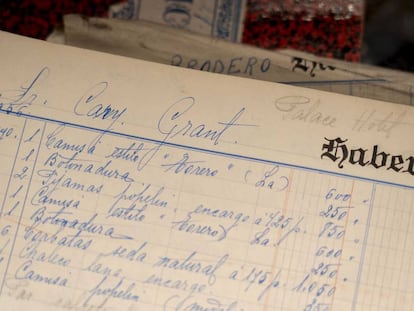 BRODERO
Sr. Cary Grant. Palace Hotel
Haber
1 Camisa estilo "Torero" (La) 600 "
1 Botonadura 250 "
2 Pijamas popelin encargo a 425 p. 850 "
1 Camisa estilo "Torero) La. 600 "
1 Botonadura 250 "
6 Corbatas seda natural a 175 p. 1.050
1 Chaleco lana encargo 250 "
1 Camisa popelin